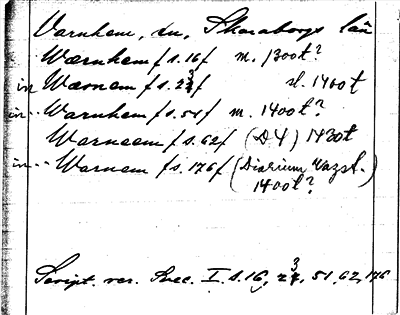 Varnhem, sn, Skaraborgs län
Wærnhem / s. 16 / m. 1300t?
in Wærnem / s. 23 / sl. 1400t
in·· Warnhem / s. 51 / m. 1400t?
Warnæem / s. 62 / (D4) 1430t
in·· Warnem / s. 176 / (Diarium Vazst.
1400t?)
Script. rer. Svec. I. s. 16, 23, 51, 62, 176